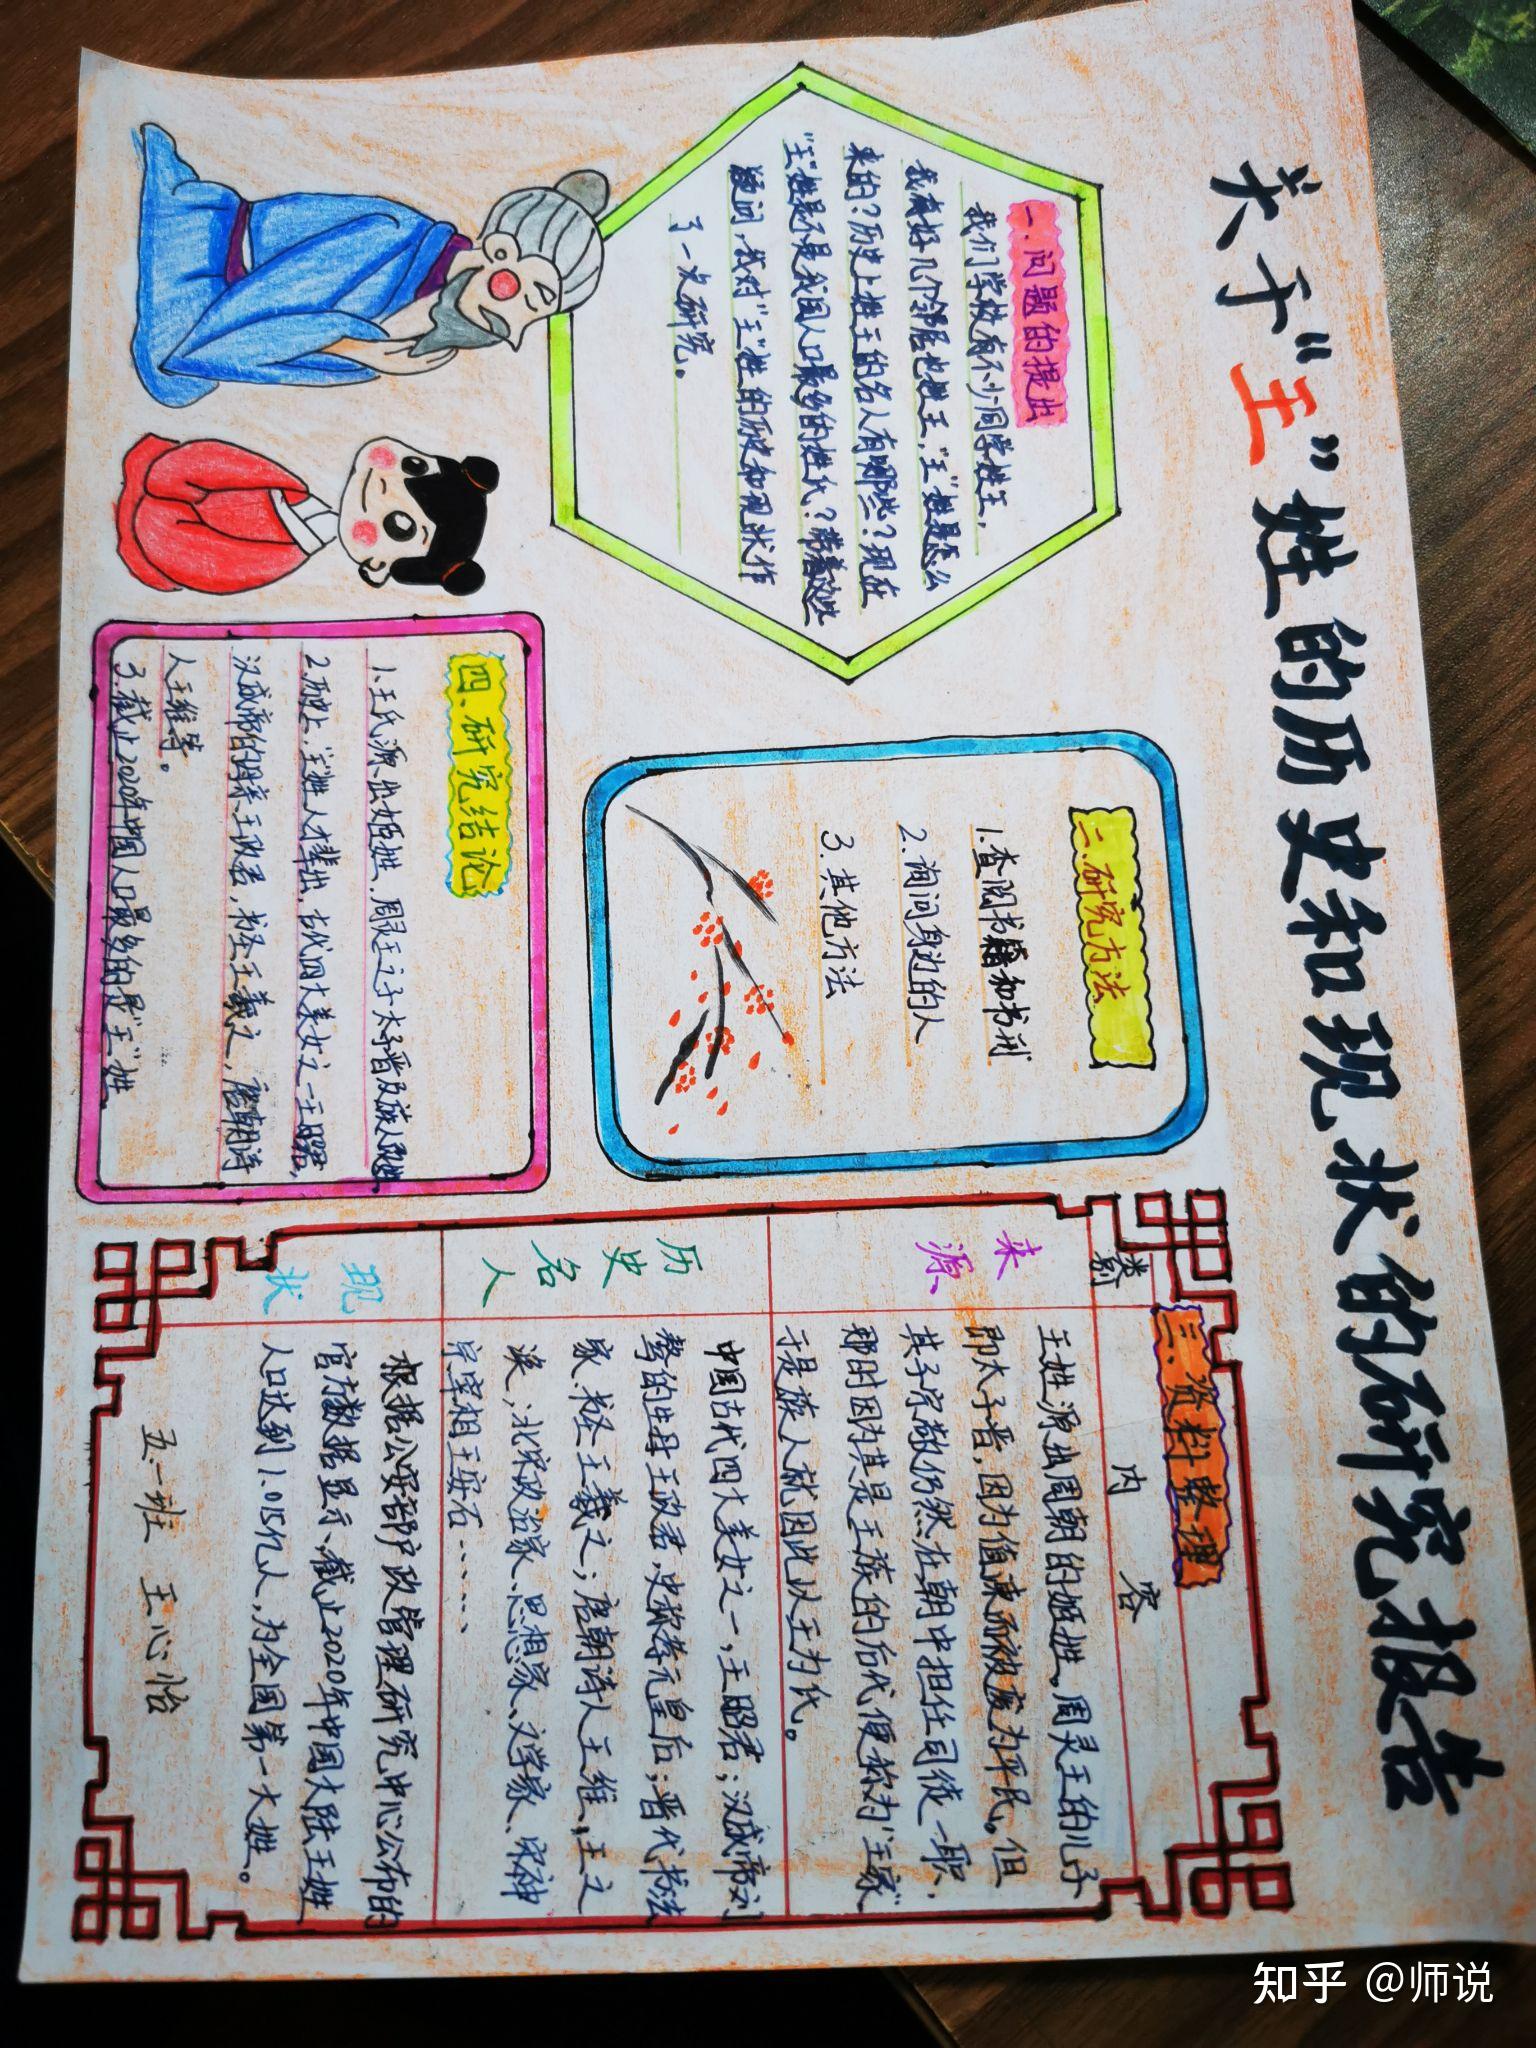 关于“王”姓的历史和现状的研究报告
一.问题的提出
我们学校有不少同学姓王，
我有好几个邻居也姓王，“王”姓是怎么
来的？历史上姓王的名人有哪些？现在
“王”姓是不是我国人口最多的姓氏？带着这些
疑问，我对“王”姓的历史和现状作
了一次研究。
二.研究方法
1.查阅书籍和书刊
2.询问身边的人
3.其他方法
三.资料整理
类别 内容
来源
王姓源出周朝的姬姓。周灵王的儿子
即太子晋，因为值谏而被废为平民。但
其子宗敬仍然在朝中担任司徒一职，
那时因为其是王族的后代便称为“王家”
于是族人就因此以王为氏。
历史名人
中国古代四大美女之一，王昭君；汉成帝刘
骜的生母王政君，史称孝元皇后；晋代书法
家、书圣王羲之；唐朝诗人王维，王之
涣；北宋政治家、思想家、文学家、宋神
宗宰相王安石……
现状
根据公安部户政管理研究中心公布的
官方数据显示、截止2020年中国大陆王姓
人口达到1.015亿人，为全国第一大姓、。
四.研究结论
1.王氏源出姬姓.周灵王之子太子晋及族人改姓
2.历史上“王”姓人才辈出，古代四大美女之一王昭君，
汉成帝的母亲王政君，书圣王羲之，唐朝诗
人王维等。
3.截止2020年中国人口最多的是“王”姓.
五.一班 王心怡
知乎 @师说